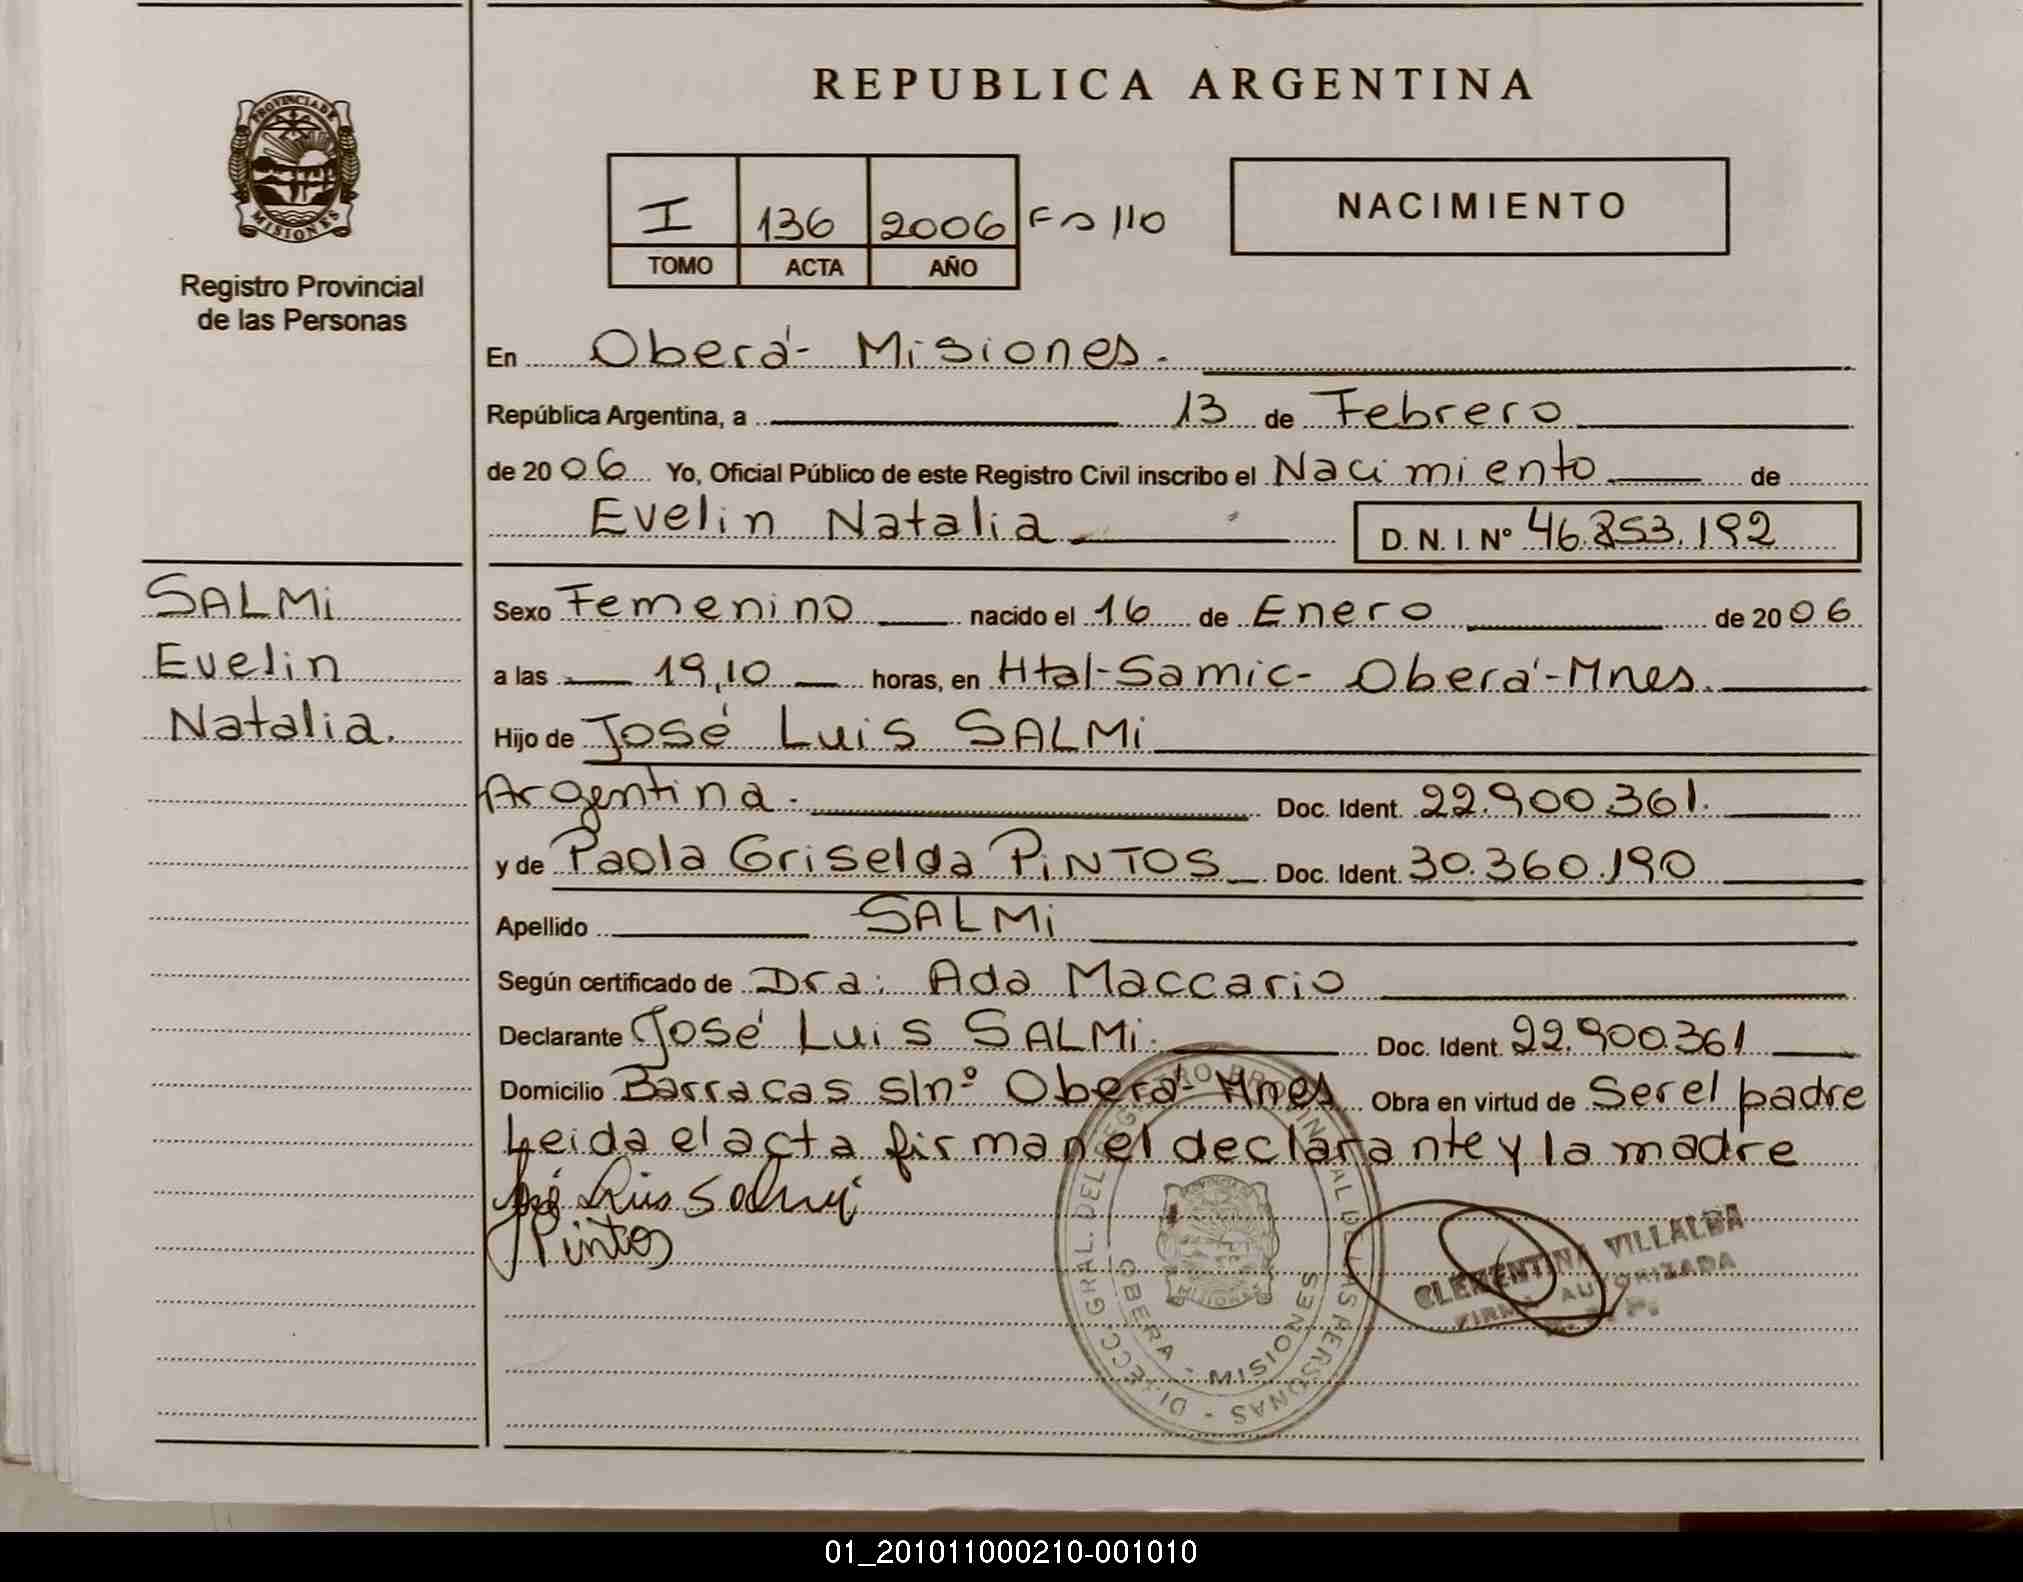 REPUBLICA ARGENTINA
PROVINCIA DE
MISIONES
Registro Provincial
de las Personas
I 136 2006 Fº 110
TOMO ACTA AÑO
NACIMIENTO
En Oberá - Misiones.
República Argentina, a 13 de Febrero
de 2006 Yo, Oficial Público de este Registro Civil inscribo el Nacimiento de
Evelin Natalia D. N. I. Nº 46.853.192
SALMi
Evelin
Natalia.
Sexo Femenino nacido el 16 de Enero de 2006
a las 19,10 horas, en Htal-Samic- Oberá-Mnes.
Hijo de José Luis SALMi
Argentina. Doc. Ident. 22.900.361.
y de Paola Griselda PiNTOS Doc. Ident. 30.360.190
Apellido SALMi
Según certificado de Dra: Ada Maccario
Declarante José Luis SALMi. Doc. Ident. 22.900.361
Domicilio Barracas s/nº Oberá- Mnes Obra en virtud de Ser el padre
Leida el acta firman el declarante y la madre
José Luis Salmi
Pintos
DIRECC. GRAL. DEL REGISTRO PROVINCIAL DE LAS PERSONAS
OBERA - MISIONES
MISIONES
CLEMENTINA VILLALBA
FIRMA AUTORIZADA
01_201011000210-001010